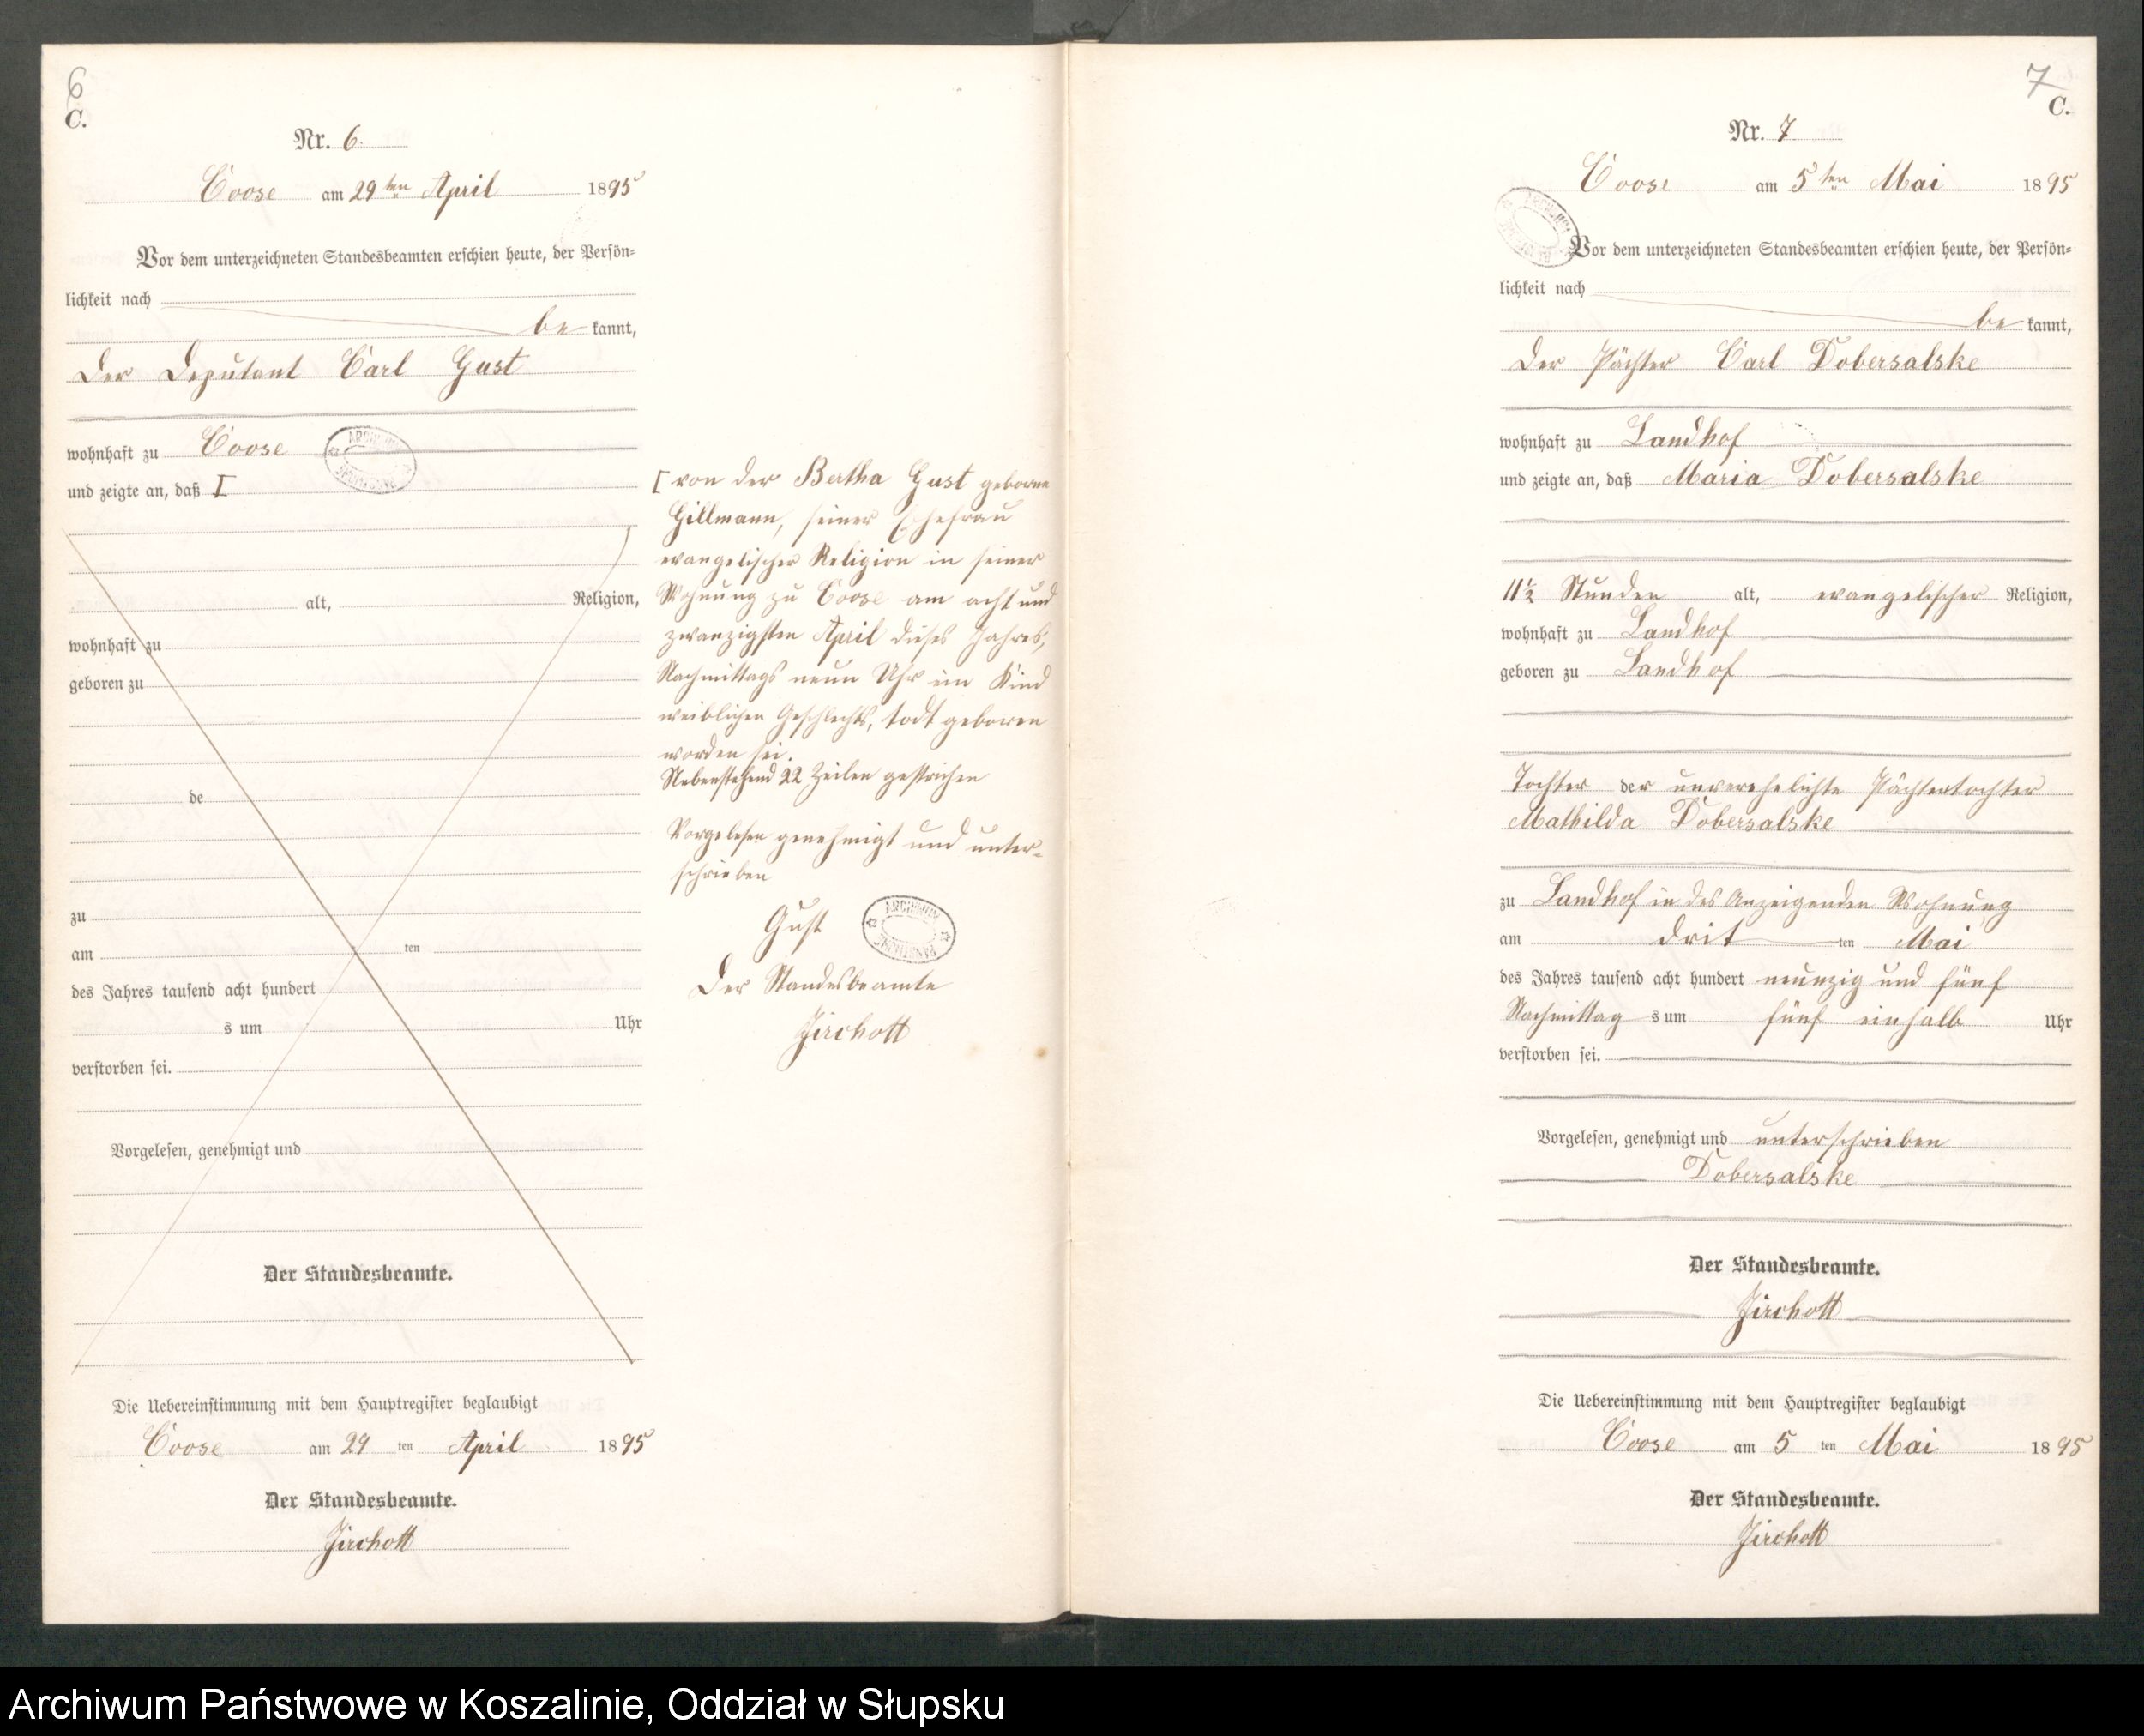 6
C.
Nr. 6.
Coose am 29ten April 1895
Vor dem unterzeichneten Standesbeamten erschien heute, der Persön-
lichkeit nach
be kannt,
der Deputant Carl Gust
wohnhaft zu Coose
und zeigte an, daß [
alt, Religion,
wohnhaft zu
geboren zu
de
zu
am ten
des Jahres tausend acht hundert
s um Uhr
verstorben sei.
Vorgelesen, genehmigt und
Der Standesbeamte.
Die Uebereinstimmung mit dem Hauptregister beglaubigt
Coose am 29 ten April 1895
Der Standesbeamte.
Jirchott
[ von der Bertha Gust geborne
Hillmann, seiner Ehefrau
evangelischer Religion in seiner
Wohnung zu Coose am acht und
zwanzigsten April dieses Jahres,
Nachmittags neun Uhr ein Kind
weiblichen Geschlechts, todt geboren
worden sei.
Nebenstehend 22 Zeilen gestrichen
Vorgelesen genehmigt und unter-
schrieben
Gust
ARCHIWUM
Der Standesbeamte
Jirchott
7
C.
Nr. 7
Coose am 5ten Mai 1895
Vor dem unterzeichneten Standesbeamten erschien heute, der Persön-
lichkeit nach
be kannt,
der Pächter Carl Dobersalske
wohnhaft zu Landhof
und zeigte an, daß Maria Dobersalske
11½ Stunden alt, evangelischer Religion,
wohnhaft zu Landhof
geboren zu Landhof
Tochter der unverehelichte Pächtertochter
Mathilda Dobersalske
zu Landhof in des Anzeigenden Wohnung
am drit ten Mai
des Jahres tausend acht hundert neunzig und fünf
Nachmittag s um fünf einhalb Uhr
verstorben sei.
Vorgelesen, genehmigt und unterschrieben
Dobersalske
Der Standesbeamte.
Jirchott
Die Uebereinstimmung mit dem Hauptregister beglaubigt
Coose am 5 ten Mai 1895
Der Standesbeamte.
Jirchott
Archiwum Państwowe w Koszalinie, Oddział w Słupsku